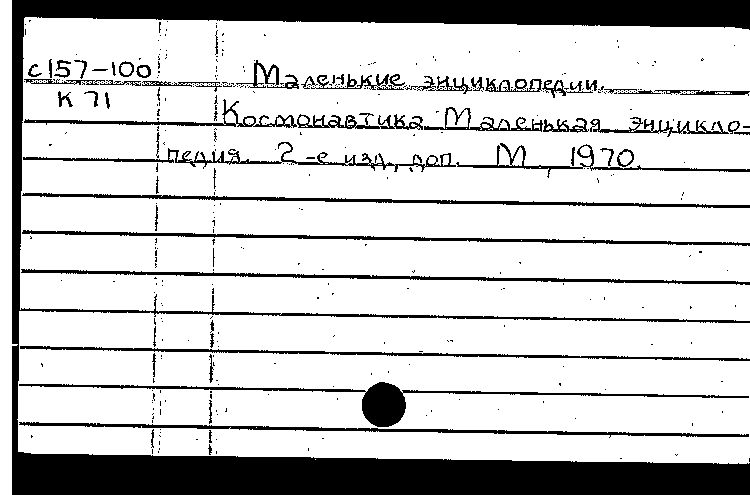 с157-100
К 71
Маленькие энциклопедии.
Космонавтика Маленькая энцикло-
педия. 2-е изд., доп. М., 1970.